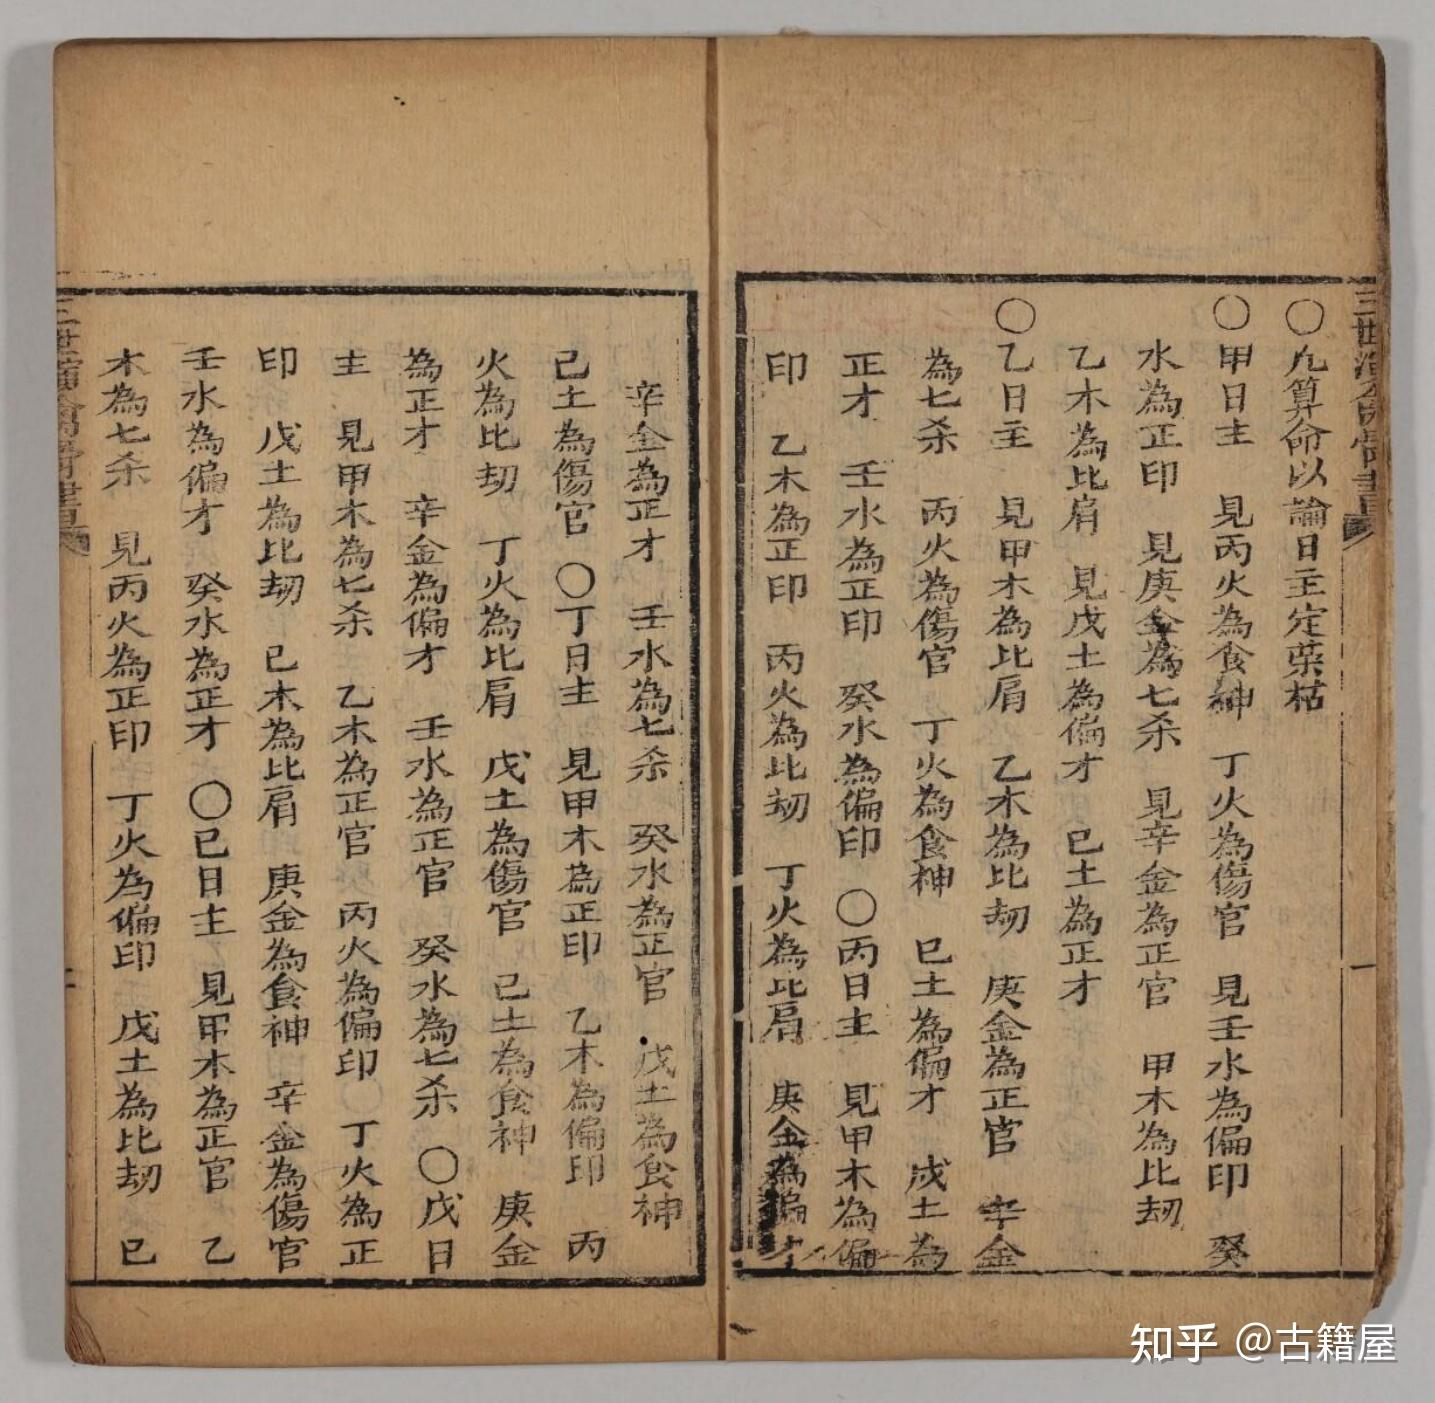 〇凡算命以論日主定荣枯
〇甲日主　見丙火為食神　丁火為傷官　見壬水為偏印　癸
水為正印　見庚金為七杀　見辛金為正官　甲木為比刼
乙木為比肩　見戊土為偏才　己土為正才
〇乙日主　見甲木為比肩　乙木為比刼　庚金為正官　辛金
為七杀　丙火為傷官　丁火為食神　巳土為偏才　戌土為
正才　壬水為正印　癸水為偏印　〇丙日主　見甲木為偏
印　乙木為正印　丙火為比刼　丁火為比肩　庚金為偏才
辛金為正才　壬水為七杀　癸水為正官　戊土為食神
己土為傷官　〇丁日主　見甲木為正印　乙木為偏印　丙
火為比刼　丁火為比肩　戊土為傷官　己土為食神　庚金
為正才　辛金為偏才　壬水為正官　癸水為七杀　〇戊日
主　見甲木為七杀　乙木為正官　丙火為偏印　丁火為正
印　戊土為比刼　己木為比肩　庚金為食神　辛金為傷官
壬水為偏才　癸水為正才　〇巳日主　見甲木為正官　乙
木為七杀　見丙火為正印　丁火為偏印　戊土為比刼　巳
三世
一
知乎 @古籍屋